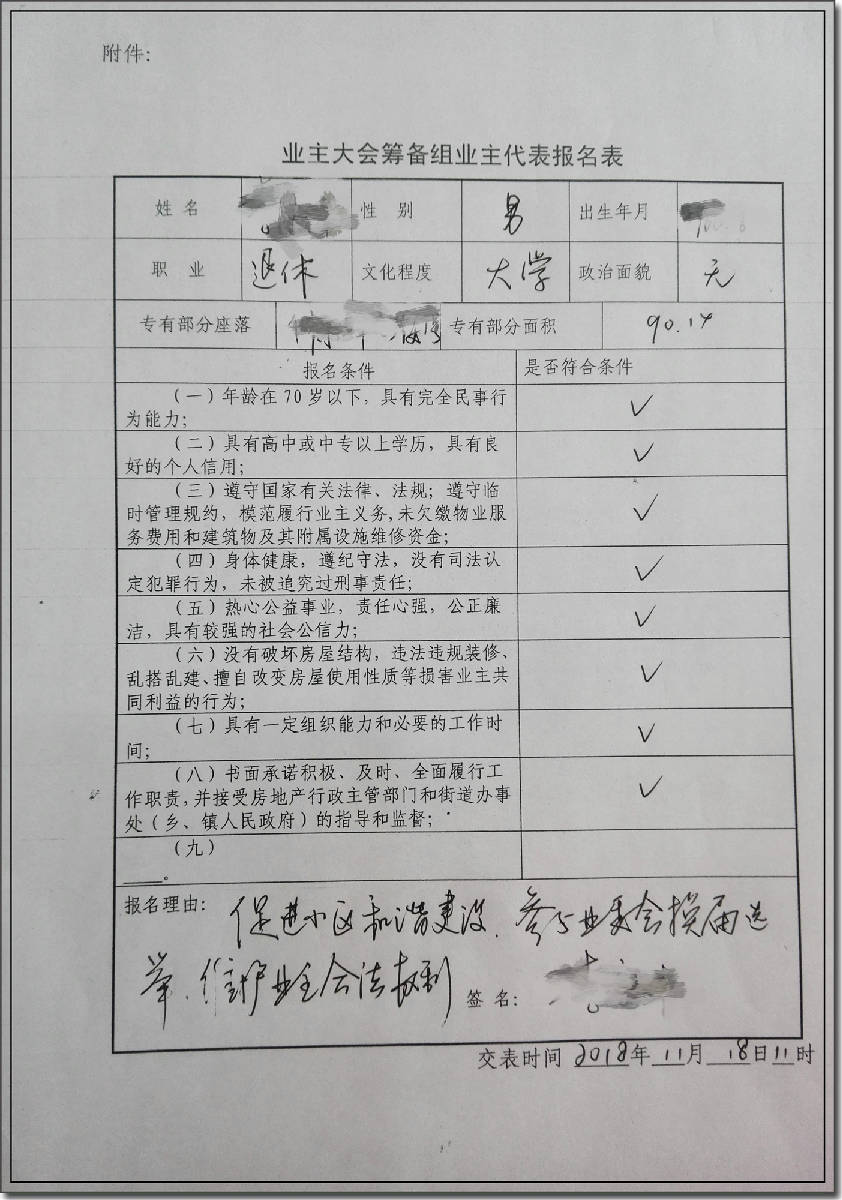 附件：
业主大会筹备组业主代表报名表
姓 名 性 别 男 出生年月
职 业 退休 文化程度 大学 政治面貌 无
专有部分座落 专有部分面积 90.14
报名条件 是否符合条件
（一）年龄在 70 岁以下，具有完全民事行 ✓
为能力；
（二）具有高中或中专以上学历，具有良 ✓
好的个人信用；
（三）遵守国家有关法律、法规；遵守临
时管理规约，模范履行业主义务，未欠缴物业服 ✓
务费用和建筑物及其附属设施维修资金；
（四）身体健康，遵纪守法，没有司法认 ✓
定犯罪行为，未被追究过刑事责任；
（五）热心公益事业，责任心强，公正廉 ✓
洁，具有较强的社会公信力；
（六）没有破坏房屋结构，违法违规装修、
乱搭乱建、擅自改变房屋使用性质等损害业主共 ✓
同利益的行为；
（七）具有一定组织能力和必要的工作时 ✓
间；
（八）书面承诺积极、及时、全面履行工
作职责，并接受房地产行政主管部门和街道办事 ✓
处（乡、镇人民政府）的指导和监督；
（九）
____。
报名理由：促进小区和谐建设、参与业委会换届选
举、维护业主合法权利 签 名：
交表时间 2018年 11月 18日11时